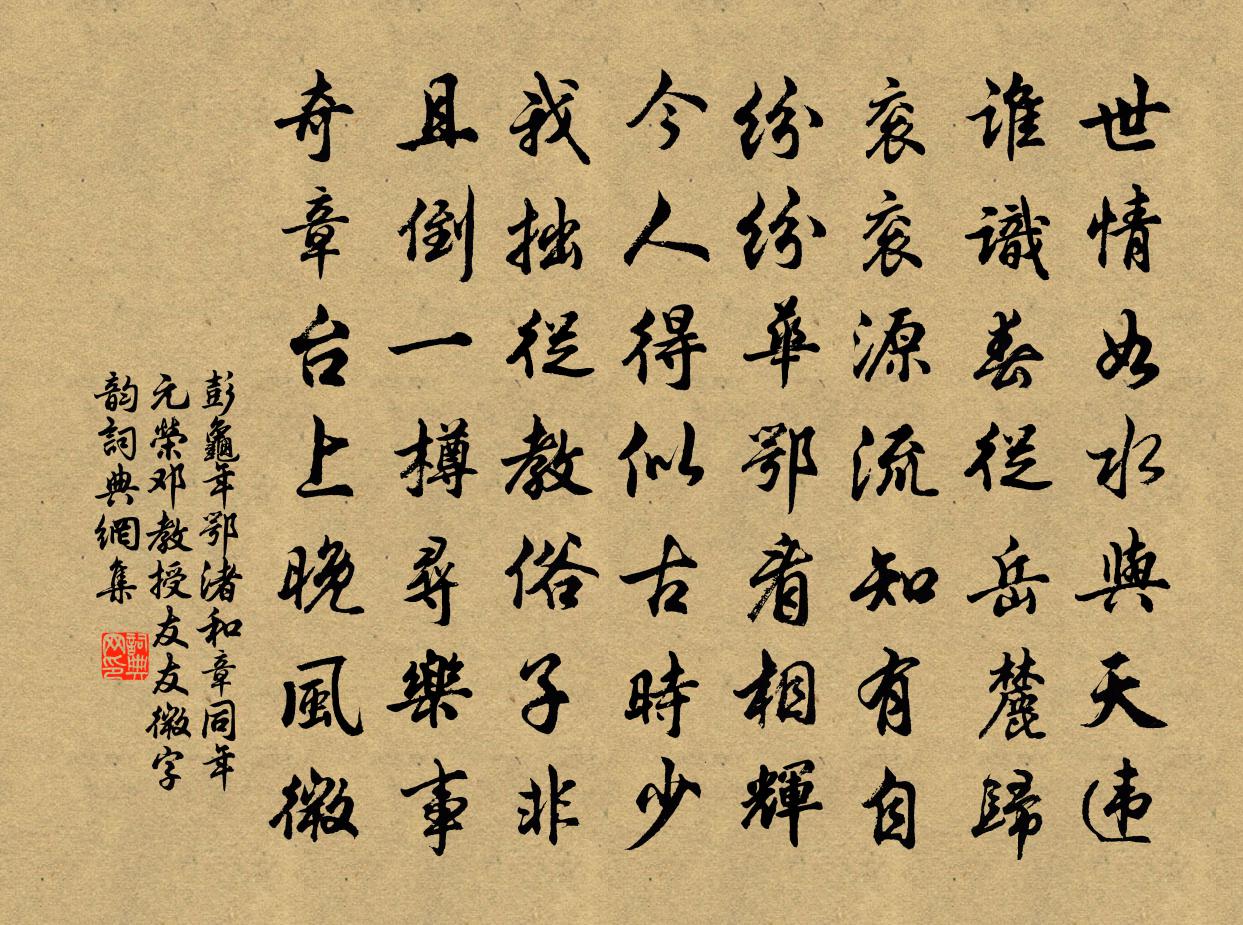 世情如水與天违
誰識春從岳麓歸
衮衮源流知有自
紛紛華鄂看相輝
今人得似古時少
我拙從教俗子非
且倒一樽尋樂事
奇章台上晚風微
彭龜年鄂渚和章同年
元榮邓教授友友微字
韵詞典網集
詞典网印